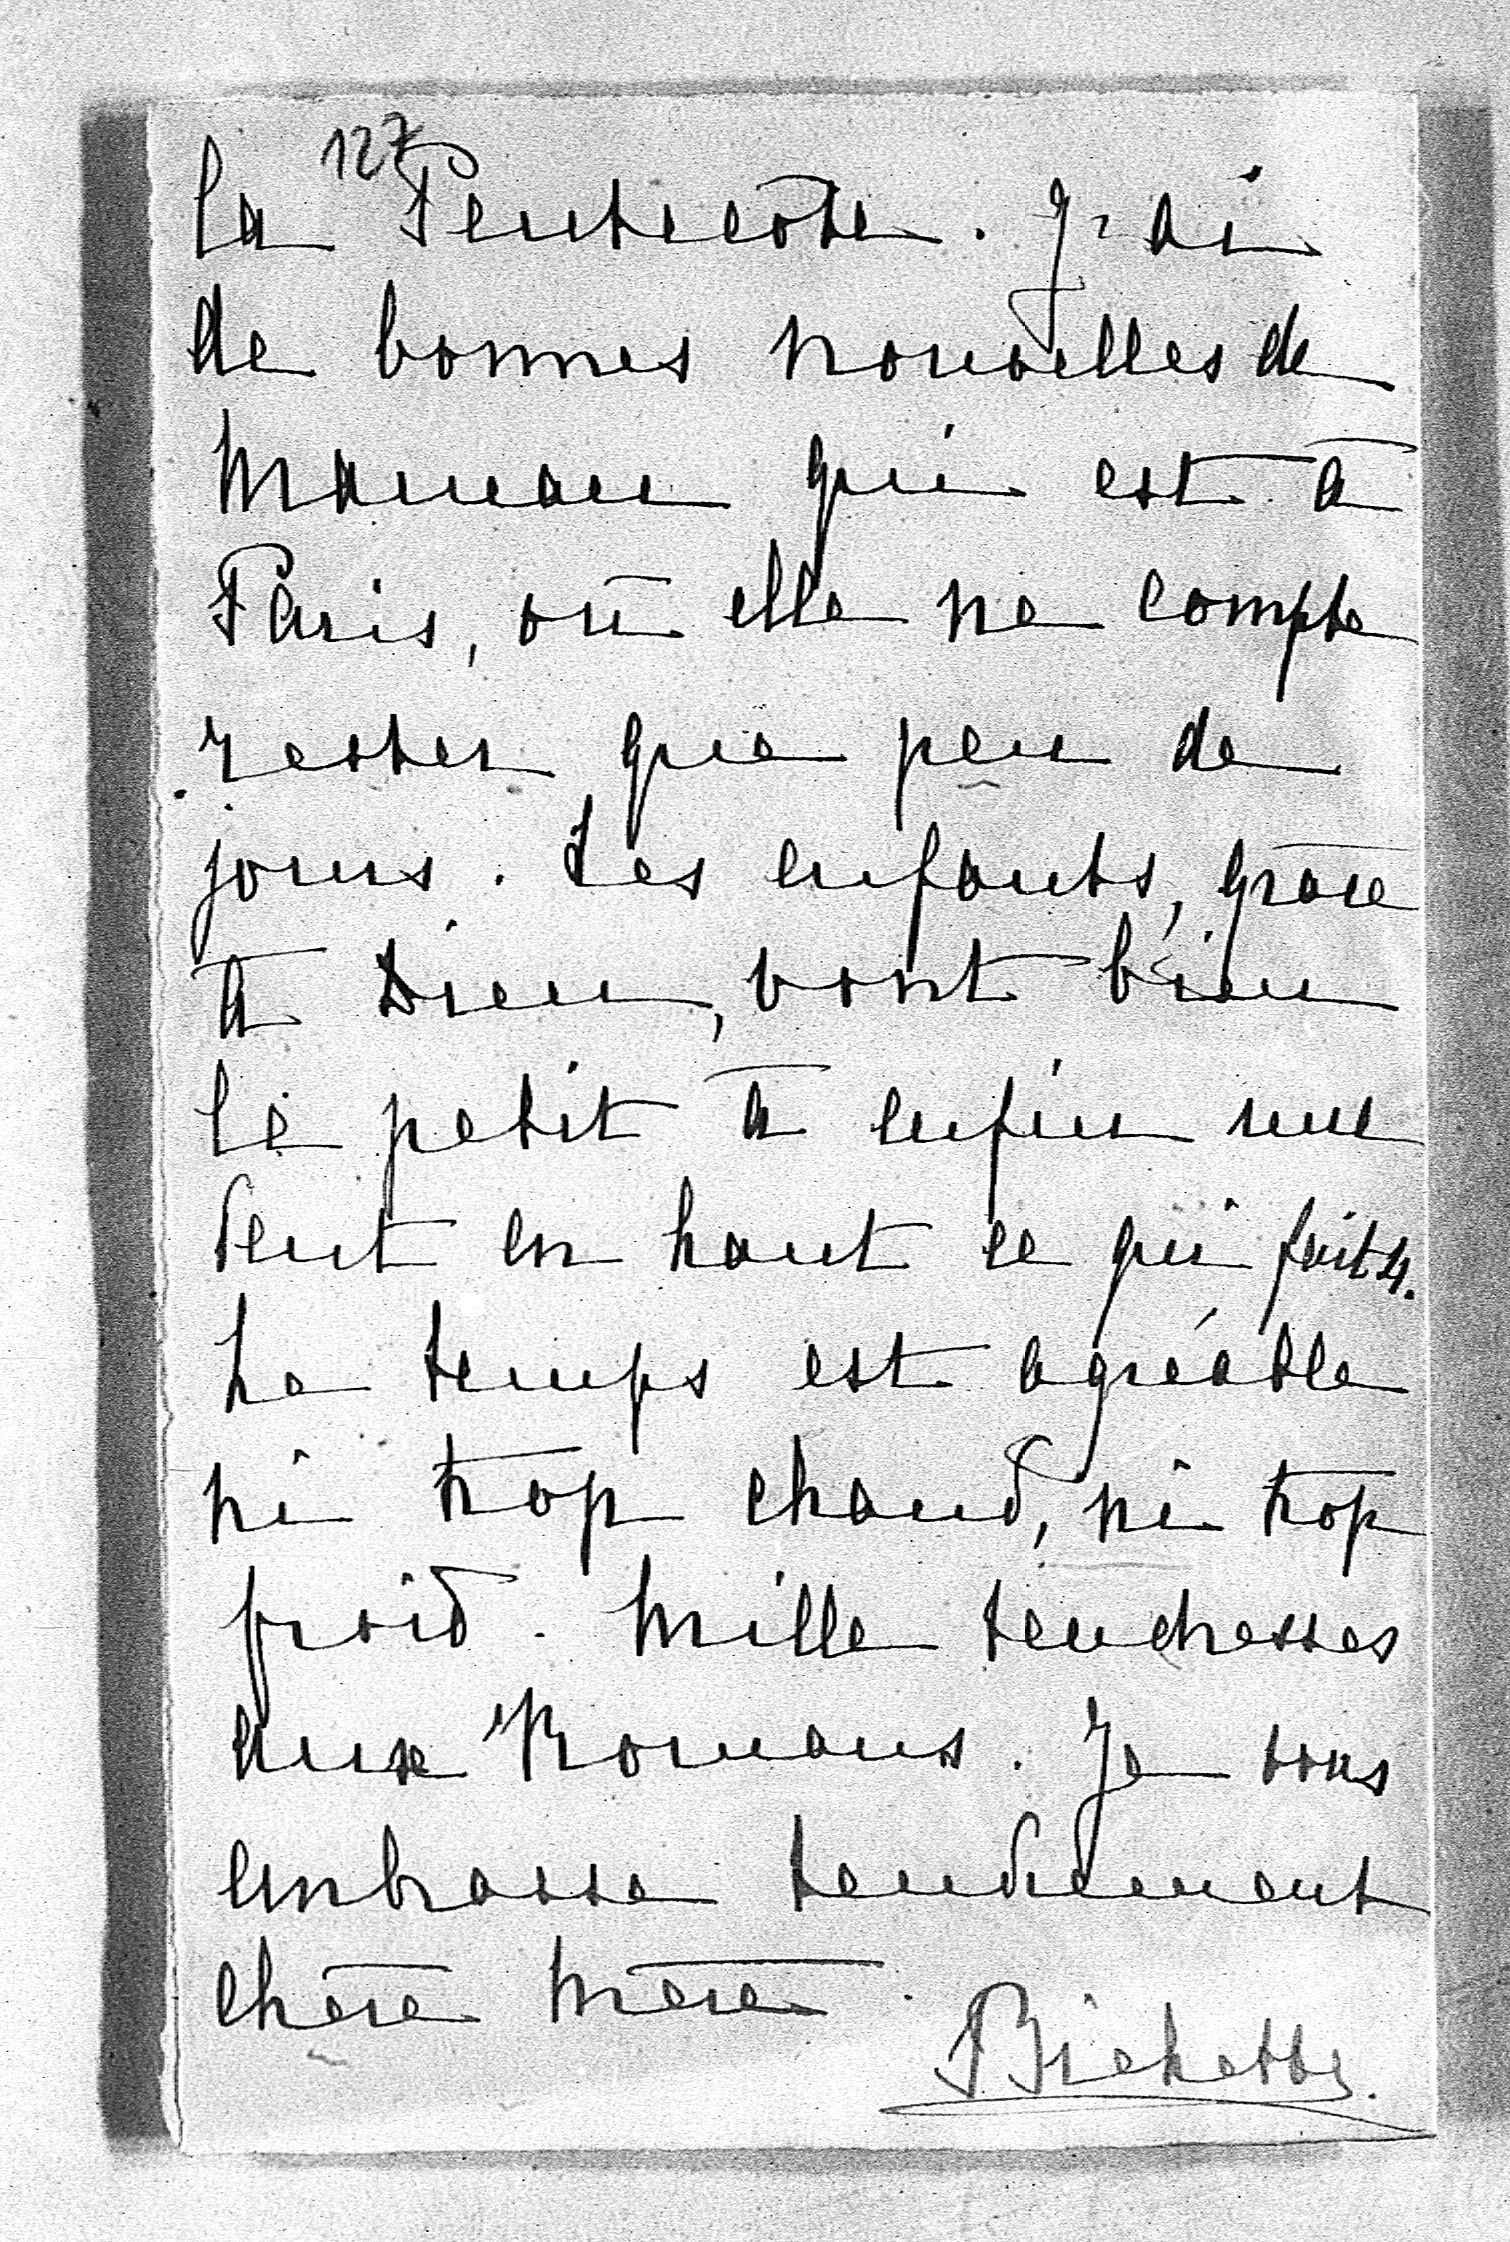 127
la Pentecôte. J'ai
de bonnes nouvelles de
Maman qui est à
Paris, où elle ne compte
rester que peu de
jours. Les enfants, grâce
à Dieu, vont bien
le petit a enfin une
dent en haut ce qui fait 4.
Le temps est agréable
ni trop chaud, ni trop
froid. Mille tendresses
aux Romans. Je vous
embrasse tendrement
chère Mère.
Bichette.